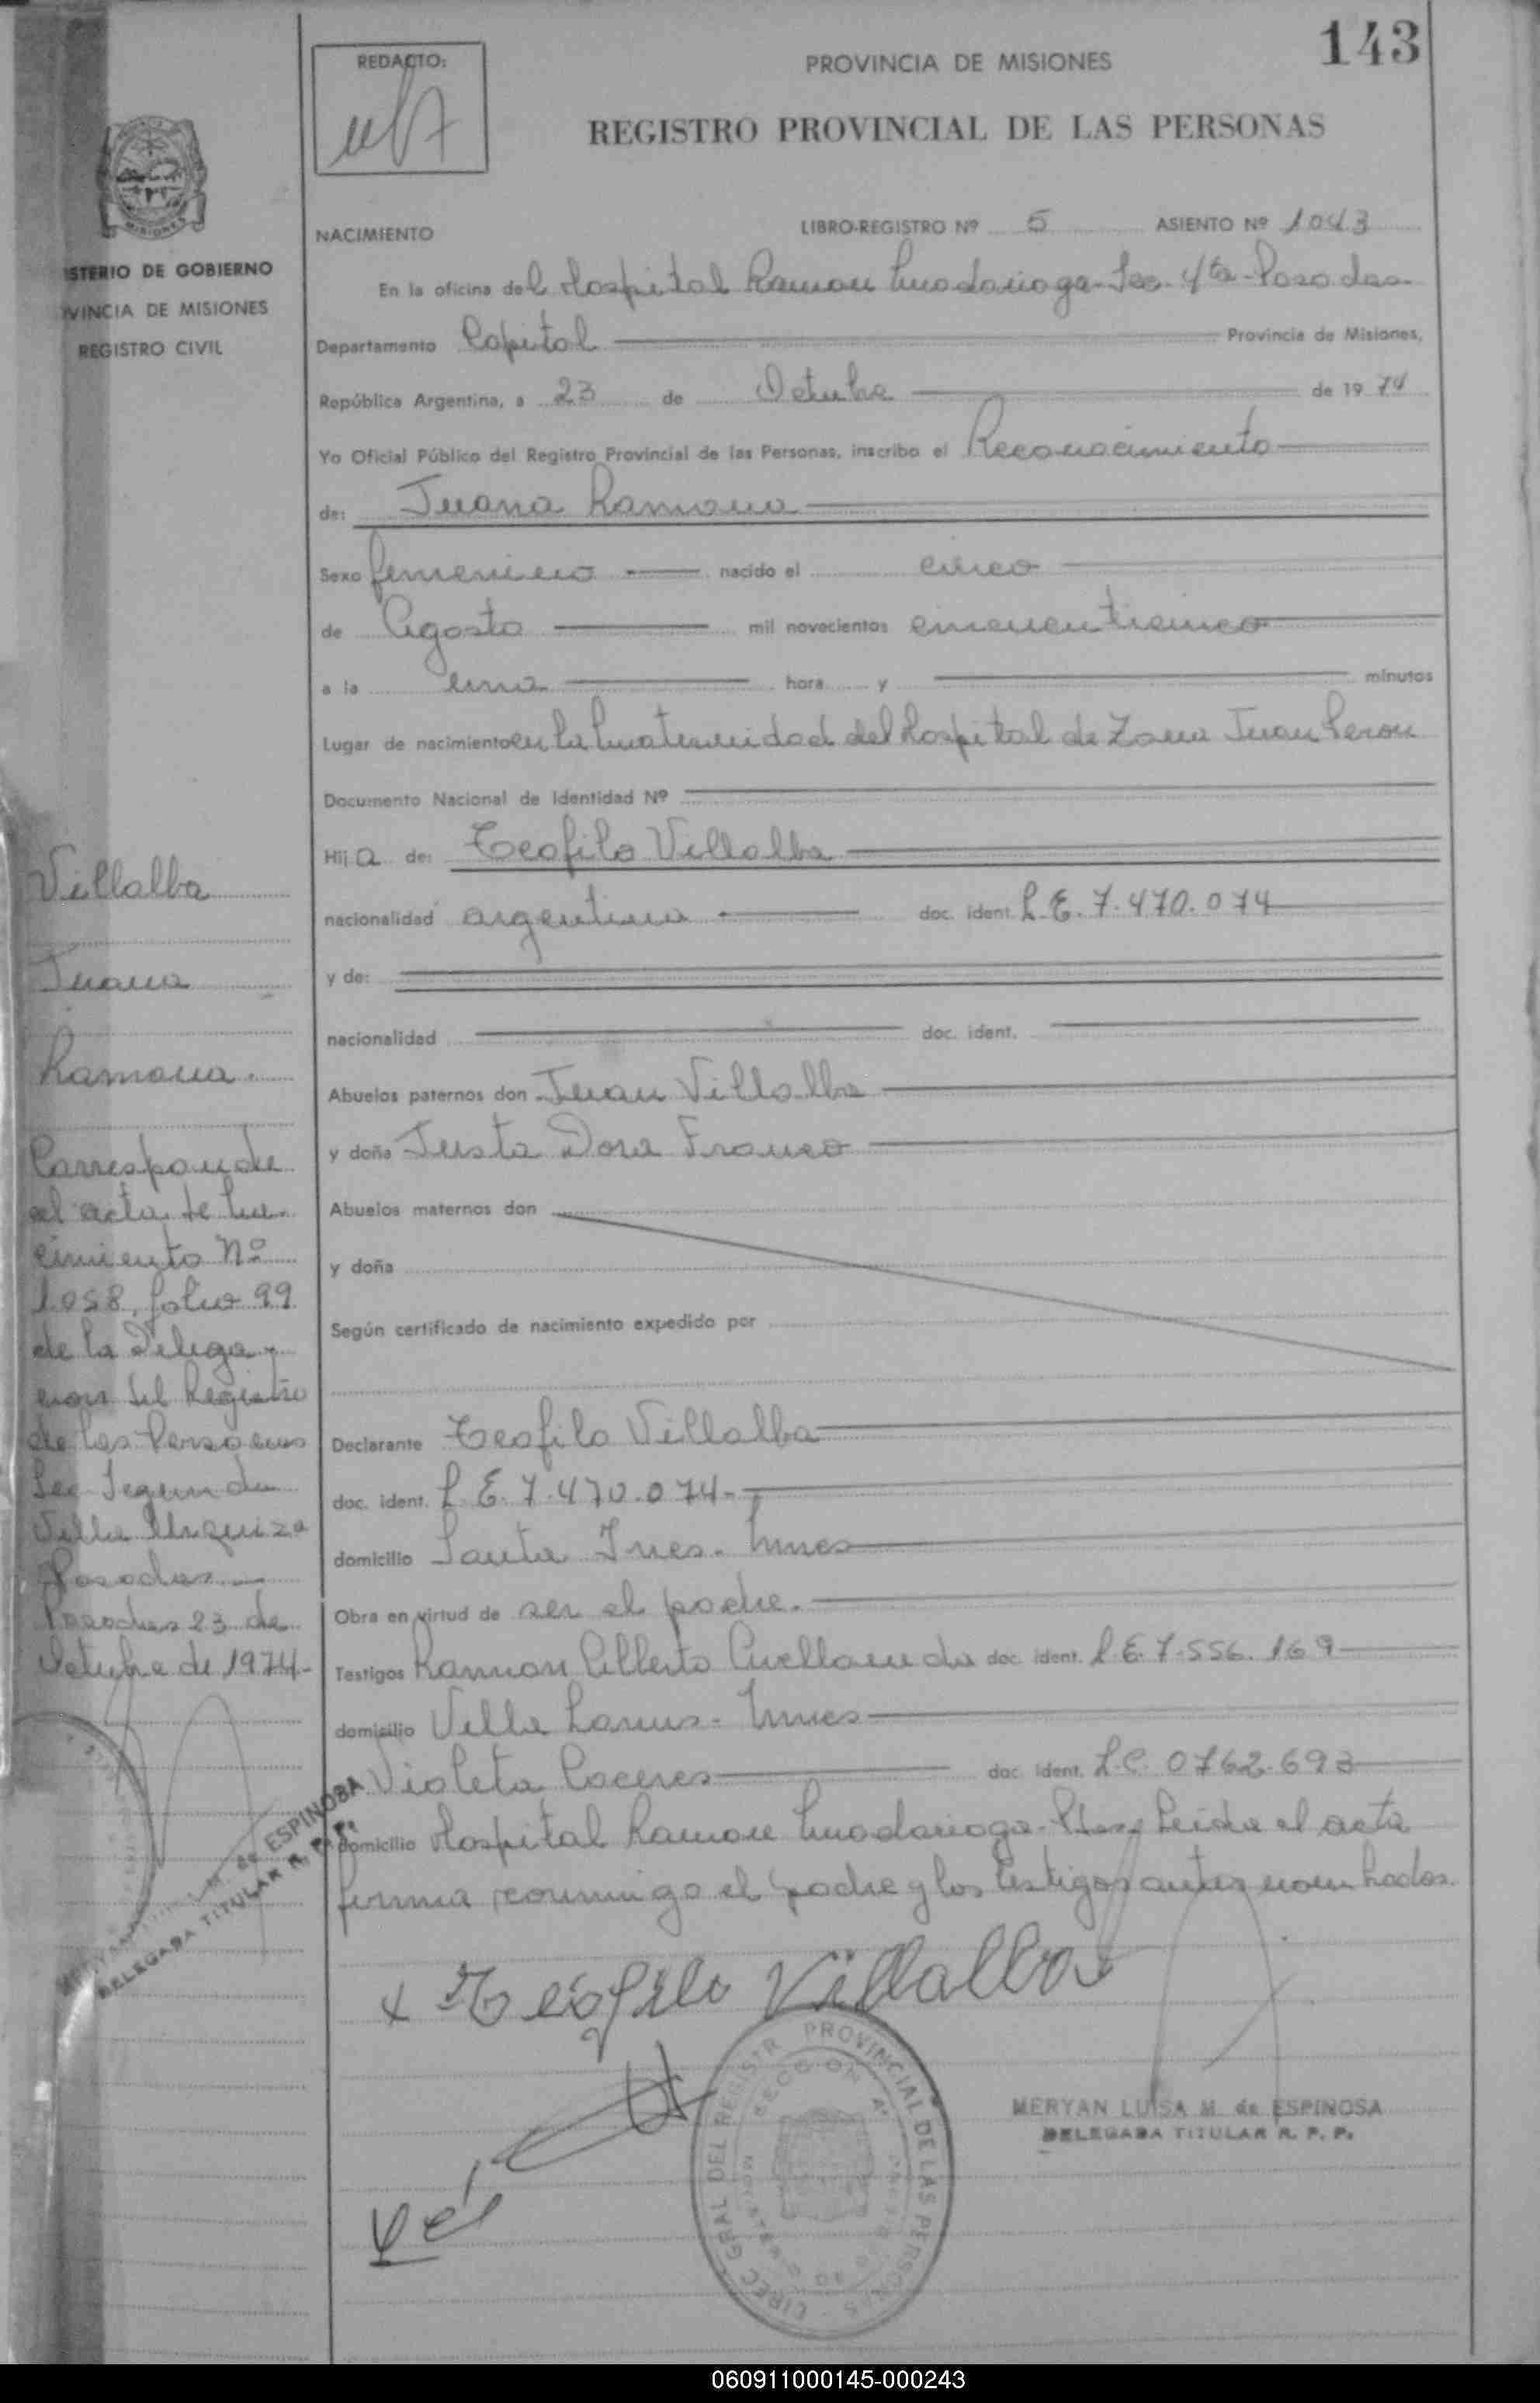 143
REDACTO:
PROVINCIA DE MISIONES
REGISTRO PROVINCIAL DE LAS PERSONAS
MISIONES
ISTERIO DE GOBIERNO
VINCIA DE MISIONES
REGISTRO CIVIL
NACIMIENTO
LIBRO-REGISTRO Nº 5 ASIENTO Nº 1043
En la oficina del Hospital Ramon Madariaga-Sec. 4ta-Posadas-
Departamento Capital Provincia de Misiones,
República Argentina, a 23 de Octubre de 1974
Yo Oficial Público del Registro Provincial de las Personas, inscribo el Reconocimiento
de: Juana Ramona
Sexo femenino nacido el cinco
de Agosto mil novecientos cincuenticinco
a la una hora y minutos
Lugar de nacimiento en la Maternidad del Hospital de Zona Juan Peron
Documento Nacional de Identidad Nº
Hija de: Teofilo Villalba
nacionalidad argentina doc. ident. L.E. 7.470.074
y de:
nacionalidad doc. ident.
Abuelos paternos don Juan Villalba
y doña Justa Dora Franco
Abuelos maternos don
y doña
Según certificado de nacimiento expedido por
Declarante Teofilo Villalba
doc. ident. L.E. 7.470.074-
domicilio Santa Ines. Mnes
Obra en virtud de ser el padre.
Testigos Ramon Alberto Avellaneda doc. ident. L.E. 7.556.169
domicilio Villa Lanus- Mnes
Violeta Caceres doc. ident. L.C. 0762.693
domicilio Hospital Ramon Madariaga- Leida el acta
firma conmigo el padre y los testigos antes nombrados.
Villalba
Juana
Ramona.
Corresponde
al acta de Na-
cimiento Nº
1058, folio 99
de la Delega-
cion del Registro
de las Personas
Sec Segunda
Villa Urquiza
Posadas
Posadas 23 de
Octubre de 1974-
M. de ESPINOSA
DELEGADA TITULAR R. P. P.
x Teofilo Villalba
DIREC. GRAL DEL REGISTR. PROVINCIAL DE LAS PERSONAS
SECCION 4ª
MERYAN LUISA M. de ESPINOSA
DELEGADA TITULAR R. P. P.
060911000145-000243